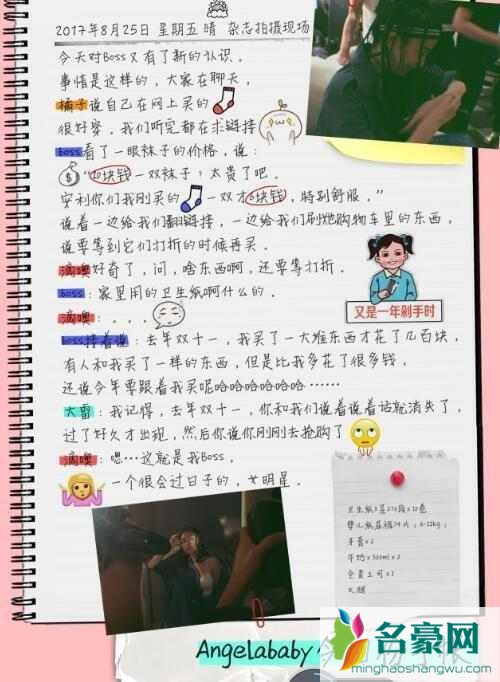 2017年8月25日 星期五 晴 杂志拍摄现场
今天对Boss又有了新的认识。
事情是这样的，大家在聊天，
橘子说自己在网上买的
很好穿，我们听完都在求链接
boss看了一眼袜子的价格，说：
$ “10块钱一双袜子？太贵了吧。
安利你们我刚买的 一双才6块钱，特别舒服。”
说着一边给我们翻链接，一边给我们刷她购物车里的东西，
说要等到它们打折的时候再买。
滴噢好奇了，问，啥东西啊，还要等打折。
boss：家里用的卫生纸啊什么的。
滴噢：。。。
又是一年剁手时
boss接着说：去年双十一，我买了一大堆东西才花了几百块，
有人和我买了一样的东西，但是比我多花了很多钱，
还说今年要跟着我买呢哈哈哈哈哈哈……
大雷：我记得，去年双十一，你和我们说着说着话就消失了，
过了好久才出现，然后你说你刚刚去抢购了
滴噢：嗯…这就是我Boss，
一个很会过日子的，女明星。
牙膏x2
牛奶x500ml x2
全麦土司x2
火腿
Angelababy
名豪网
minghaoshangwu.com